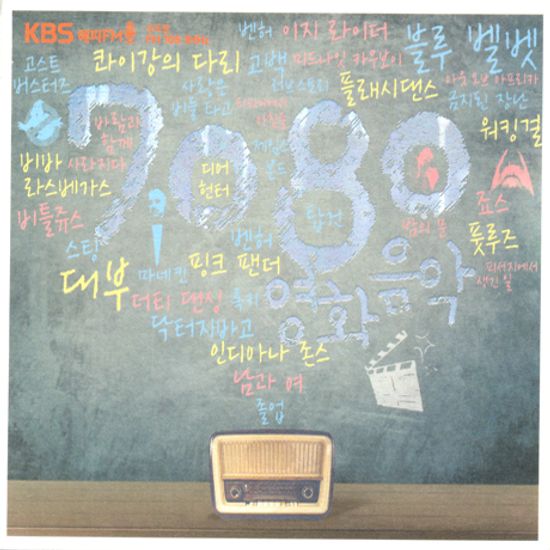 KBS 해피FM
벤허 이지 라이더 블루 벨벳
고스트 버스터즈
콰이강의 다리
고백
미드나잇 카우보이
사랑은 비를 타고
러브스토리
플래시댄스
아웃 오브 아프리카
금지된 장난
바람과 함께 사라지다
7080
워킹걸
비바 라스베가스
디어 헌터
제임스 본드
비틀쥬스
탑건
밤의 문
죠스
스팅
벤허
풋루즈
대부
마네킨
핑크 팬더
피서지에서 생긴 일
더티 댄싱
록키
영화음악
닥터지바고
인디아나 존스
남과 여
졸업